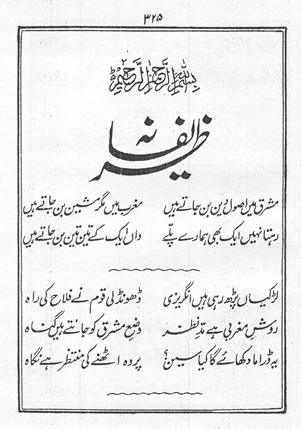 ۳۲۵
بسم اللہ الرحمٰن الرحیم
ظریفانہ
مشرق میں اصولِ دین بن جاتے ہیں
مغرب میں مگر مشین بن جاتے ہیں
رہتا نہیں ایک بھی ہمارے پلّے
واں ایک کے تین تین بن جاتے ہیں
لڑکیاں پڑھ رہی ہیں انگریزی
ڈھونڈ لی قوم نے فلاح کی راہ
روشِ مغربی ہے مدِّ نظر
وضعِ مشرق کو جانتے ہیں گناہ
یہ ڈراما دکھائے گا کیا سین؟
پردہ اٹھنے کی منتظر ہے نگاہ